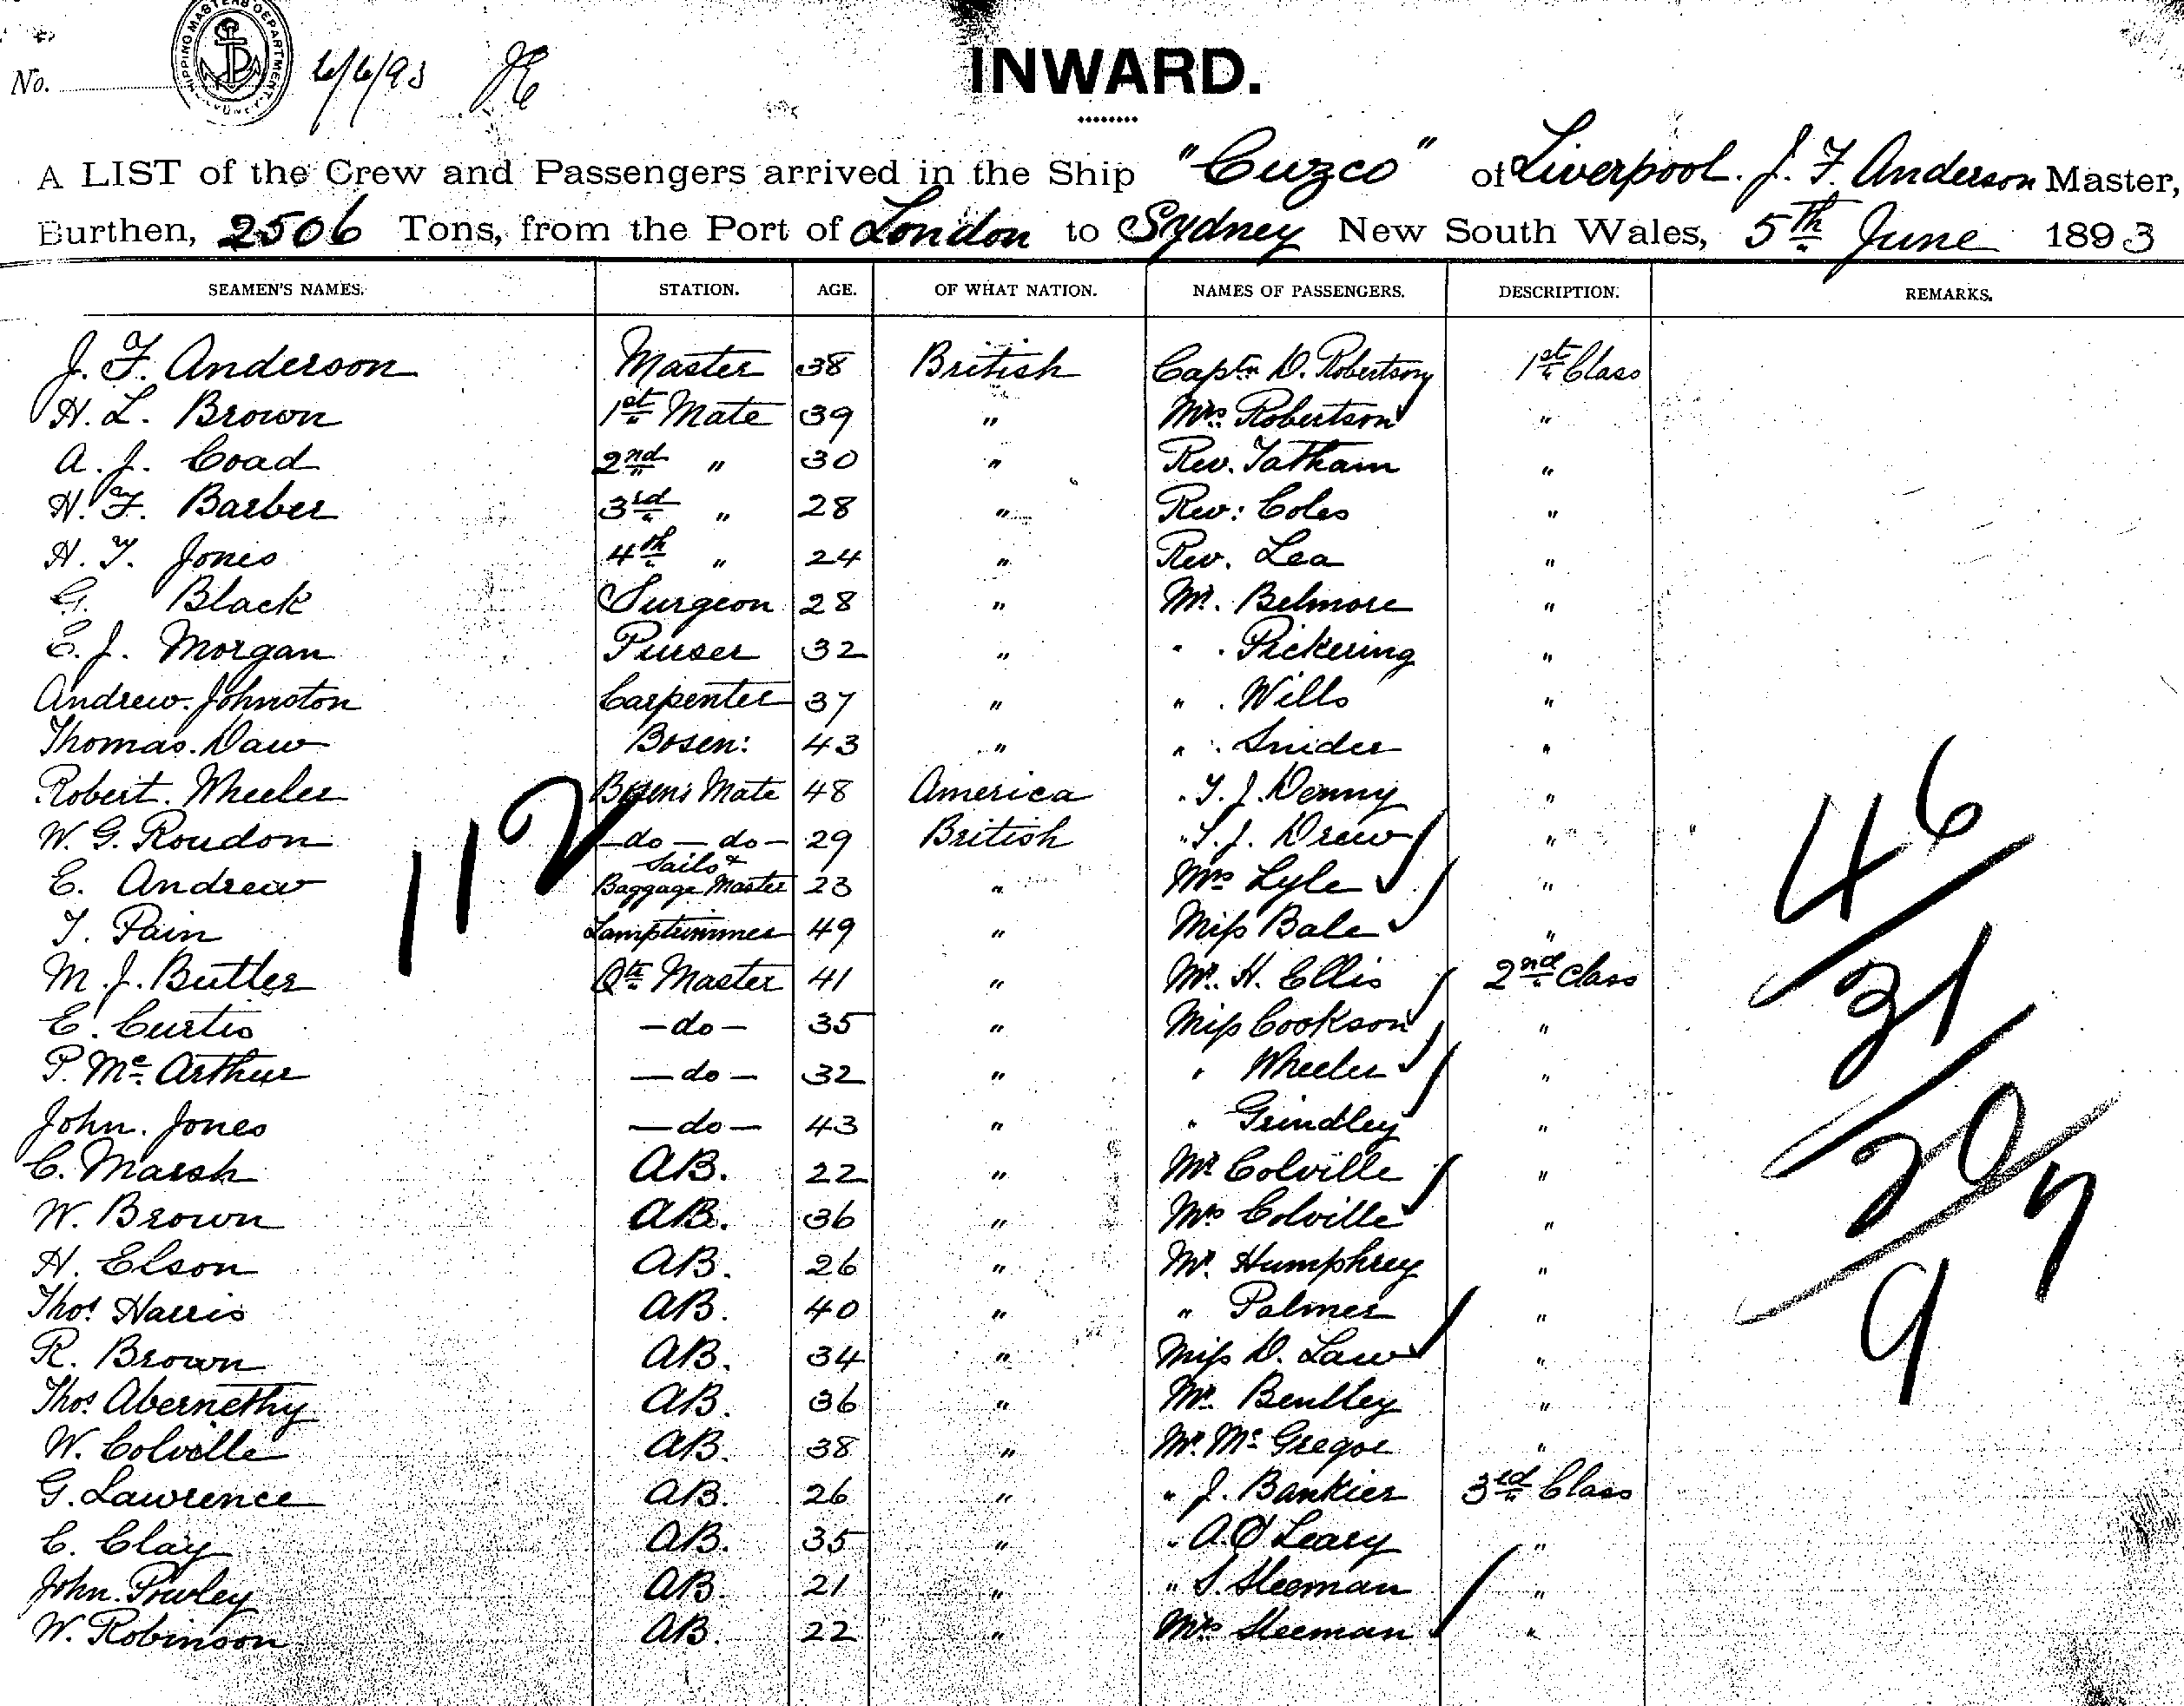 No.
SHIPPING MASTERS DEPARTMENT
6/6/93
INWARD.
A LIST of the Crew and Passengers arrived in the Ship "Cuzco" of Liverpool. J. F. Anderson Master,
Burthen, 2506 Tons, from the Port of London to Sydney New South Wales, 5th June 1893
SEAMEN'S NAMES. STATION. AGE. OF WHAT NATION. NAMES OF PASSENGERS. DESCRIPTION. REMARKS.
J. F. Anderson Master 38 British Captn D. Robertson 1st Class
H. L. Brown 1st Mate 39 " Mrs Robertson "
A. J. Coad 2nd " 30 " Rev. Tatham "
H. F. Barber 3rd " 28 " Rev: Coles "
H. T. Jones 4th " 24 " Rev. Lea "
G. Black Surgeon 28 " Mr. Belmore "
E. J. Morgan Purser 32 " " Pickering "
Andrew. Johnston Carpenter 37 " " Wills "
Thomas. Daw Bosen: 43 " " Snider "
Robert. Wheeler Bosen's Mate 48 America " T. J. Denny "
W. G. Roudon -do-do- 29 British " S. J. Drew "
E. Andrew Sails & Baggage Master 23 " Mrs Lyle "
T. Pain Lamptrimmer 49 " Miss Bale "
M. J. Butler Qtr Master 41 " Mr. H. Ellis 2nd Class
E. Curtis -do- 35 " Miss Cookson "
P. Mc Arthur -do- 32 " " Wheeler "
John. Jones -do- 43 " " Grindley "
C. Marsh AB. 22 " Mr Colville "
W. Brown AB. 36 " Mrs Colville "
H. Elson AB. 26 " Mr. Humphrey "
Thos Harris AB. 40 " " Palmer "
R. Brown AB. 34 " Miss D. Law "
Thos Abernethy AB. 36 " Mr. Bentley "
W. Colville AB. 38 " Mr. Mc Gregor "
G. Lawrence AB. 26 " " J. Bankier 3rd Class
C. Clay AB. 35 " " A. O'Leary "
John. Powley AB. 21 " " S. Sleeman "
W. Robinson AB. 22 " Mrs Sleeman "
112
46
31
20
7
9